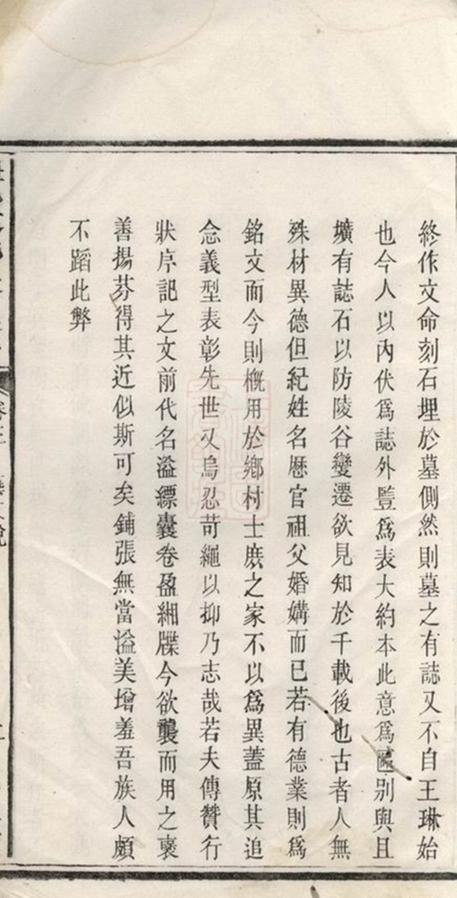 終作文命刻石埋於墓側然則墓之有誌又不自王琳始
也今人以內伏爲誌外豎爲表大約本此意爲區别與且
壙有誌石以防陵谷變遷欲見知於千載後也古者人無
殊材異德但紀姓名歷官祖父婚媾而已若有德業則爲
銘文而今則槪用於鄉村士庶之家不以爲異蓋原其追
念義型表彰先世又烏忍苛繩以抑乃志哉若夫傳贊行
狀序記之文前代名溢縹囊卷盈緗牒今欲襲而用之裒
善揚芬得其近似斯可矣鋪張無當溢美增羞吾族人頗
不蹈此弊